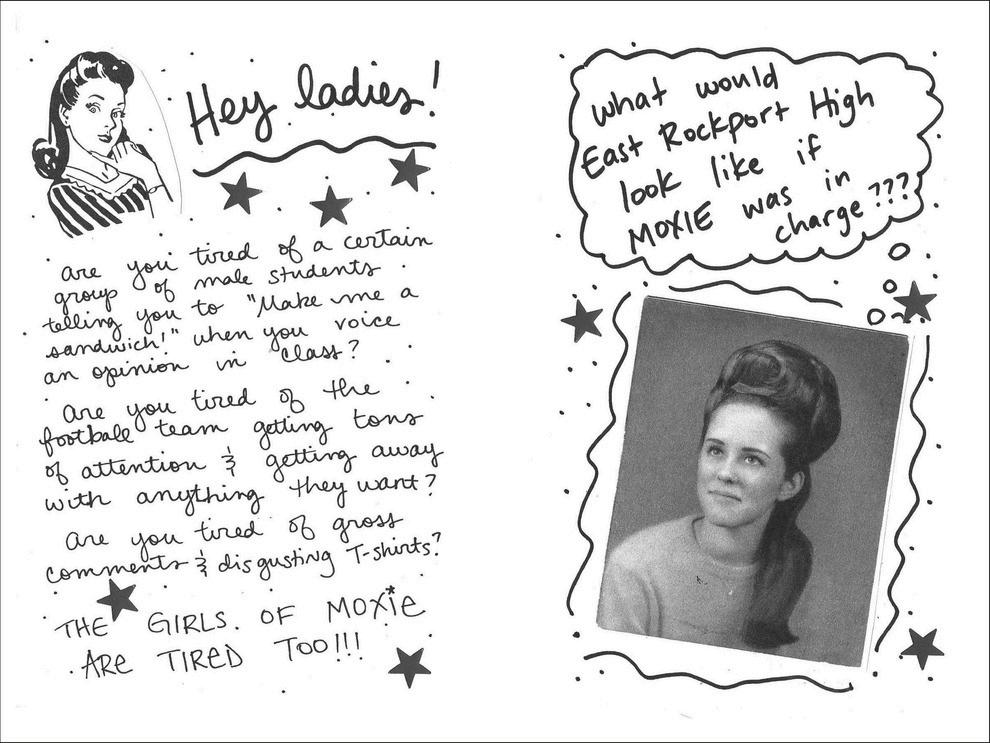 Hey ladies!
are you tired of a certain
group of male students
telling you to "Make me a
sandwich!" when you voice
an opinion in class?
Are you tired of the
football team getting tons
of attention & getting away
with anything they want?
Are you tired of gross
comments & disgusting T-shirts?
THE GIRLS OF MOXIE
ARE TIRED TOO!!!
what would
East Rockport High
look like if
MOXIE was in
charge???